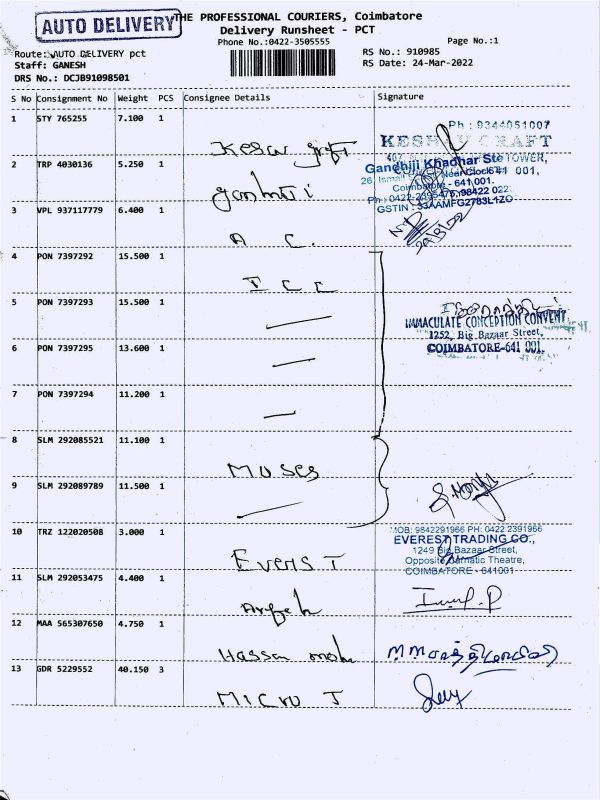 AUTO DELIVERY
THE PROFESSIONAL COURIERS, Coimbatore
Delivery Runsheet - PCT
Phone No.:0422-3505555
Page No.:1
Route: AUTO DELIVERY pct
RS No.: 910985
Staff: GANESH
RS Date: 24-Mar-2022
DRS No.: DCJB91098501
S No Consignment No Weight PCS Consignee Details Signature
1 STY 765255 7.100 1
Ph : 9344051007
2 TRP 4030136 5.250 1
TOWER,
Gandhiji Khadhar Store
Near Clock
641 001,
Coimbatore - 641 001.
GSTIN : 33AAMFG2783L1ZO
3 VPL 937117779 6.400 1
A C.
4 PON 7397292 15.500 1
I C C
5 PON 7397293 15.500 1
IMMACULATE CONCEPTION CONVENT
1252, Big Bazaar Street,
COIMBATORE-641 001.
6 PON 7397295 13.600 1
7 PON 7397294 11.200 1
8 SLM 292085521 11.100 1
Moses
9 SLM 292089789 11.500 1
10 TRZ 122020508 3.000 1
MOB: 9842291966 PH: 0422 2391966
EVEREST TRADING CO.,
1249 Big Bazaar Street,
Opposite Damatic Theatre,
COIMBATORE - 641001
Everest T
11 SLM 292053475 4.400 1
12 MAA 565307650 4.750 1
Hassan
13 GDR 5229552 40.150 3
Micro J